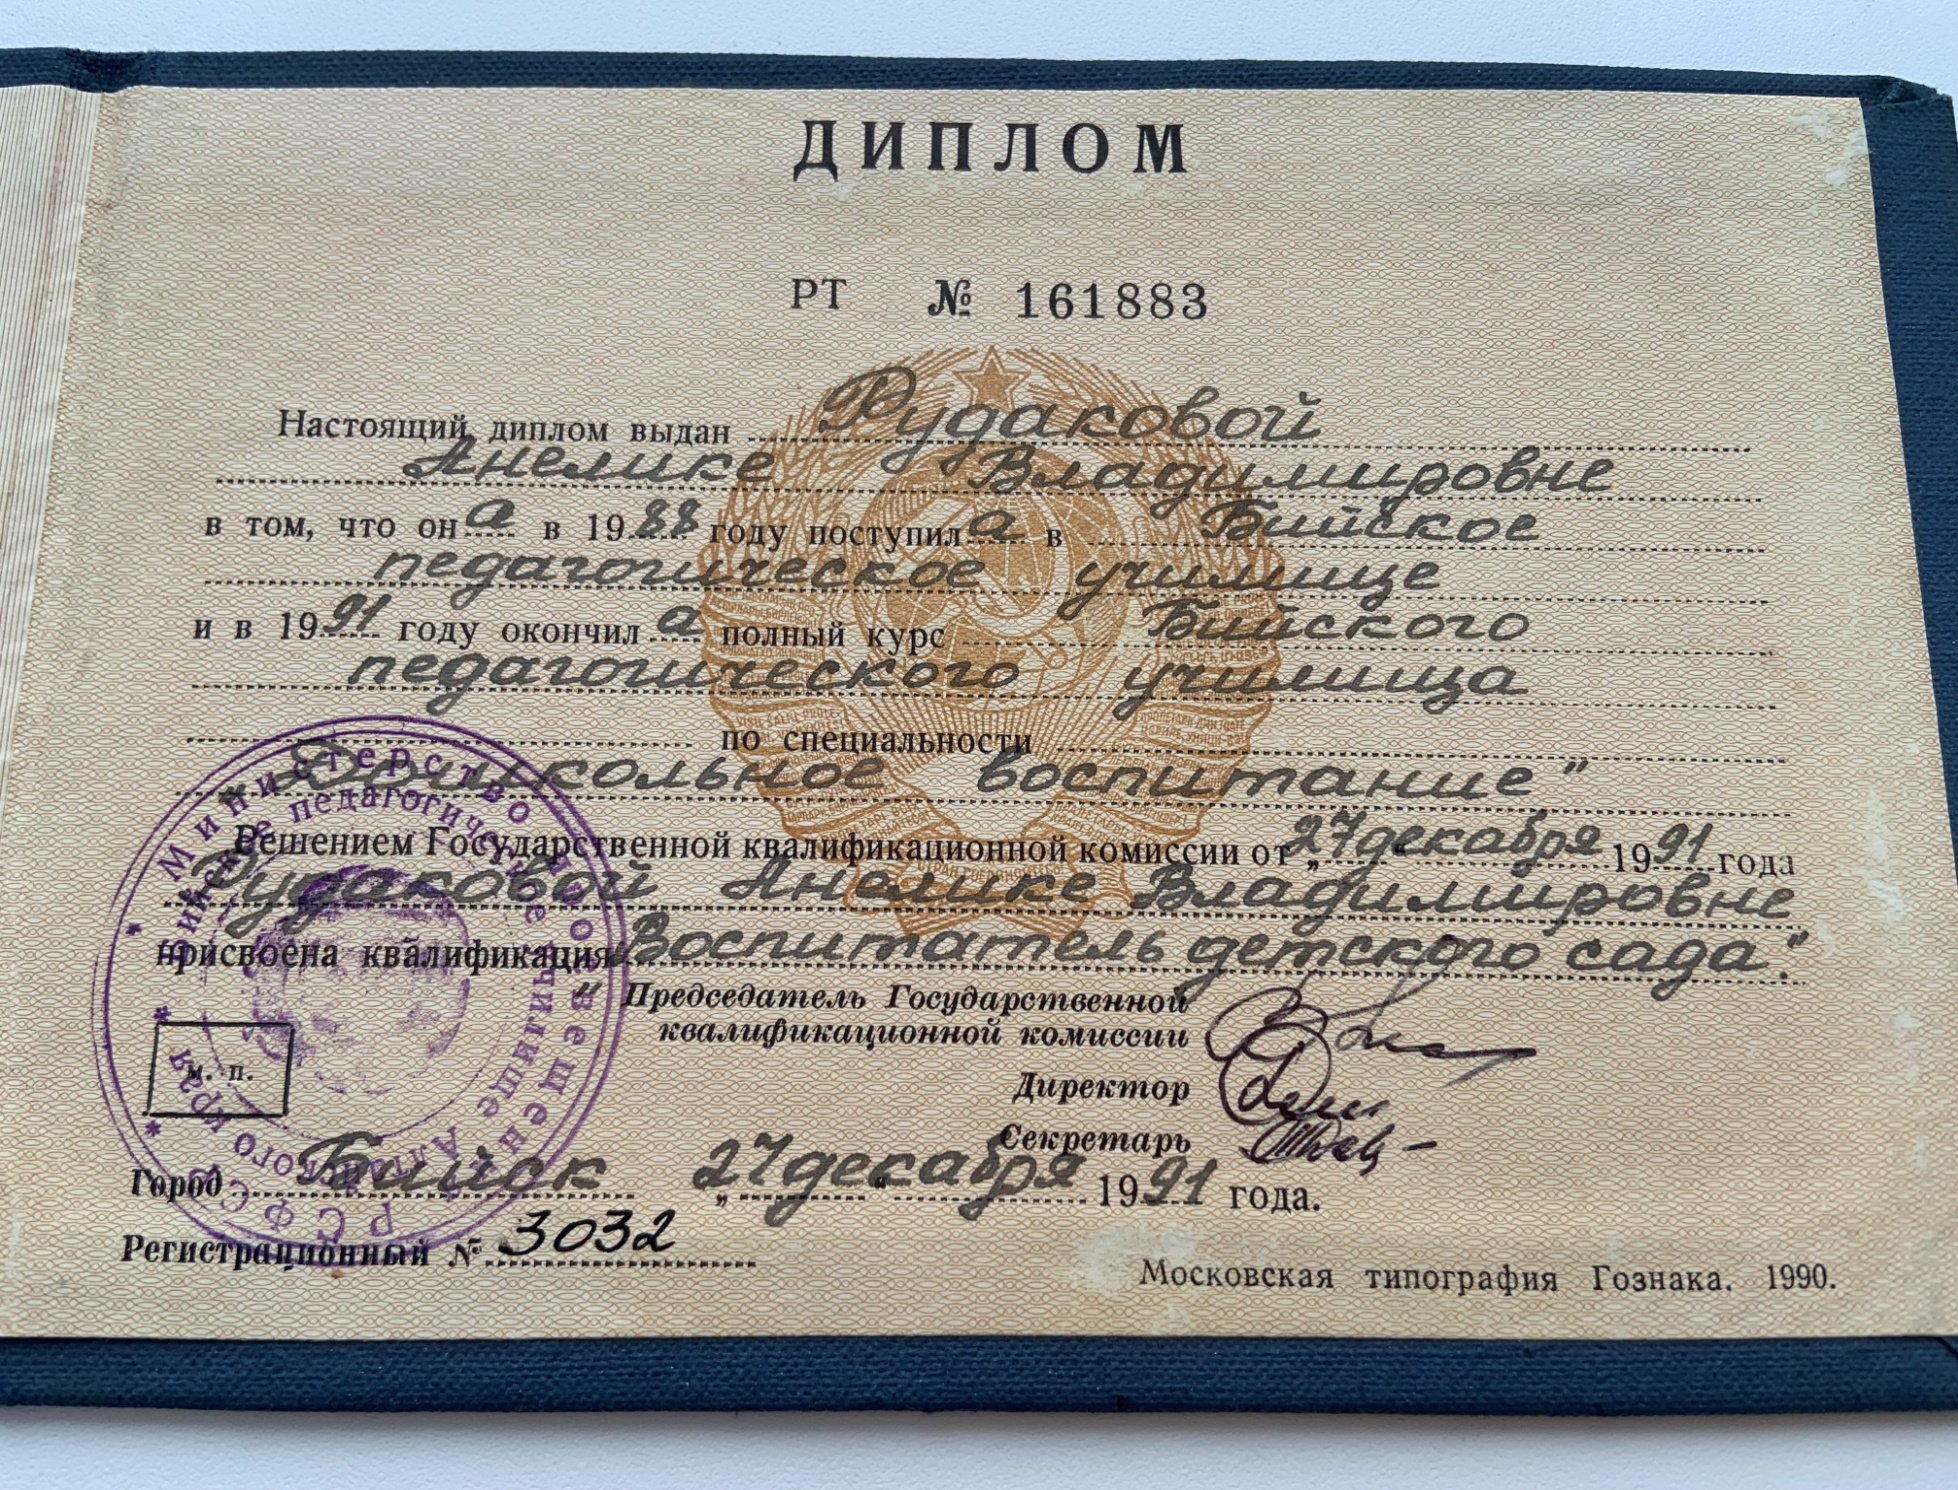 ДИПЛОМ
РТ № 161883
Настоящий диплом выдан Рудаковой
Анелике Владимировне
в том, что она в 1988 году поступила в Бийское
педагогическое училище
и в 1991 году окончила полный курс Бийского
педагогического училища
по специальности
„Дошкольное воспитание"
Решением Государственной квалификационной комиссии от „27" декабря 1991 года
Рудаковой Анелике Владимировне
присвоена квалификация „Воспитатель детского сада."
Председатель Государственной
квалификационной комиссии
Директор
Секретарь
м. п.
Министерство просвещения РСФСР
Бийское педагогическое училище Алтайского края
Город Бийск „27" декабря 1991 года.
Регистрационный № 3032
Московская типография Гознака. 1990.